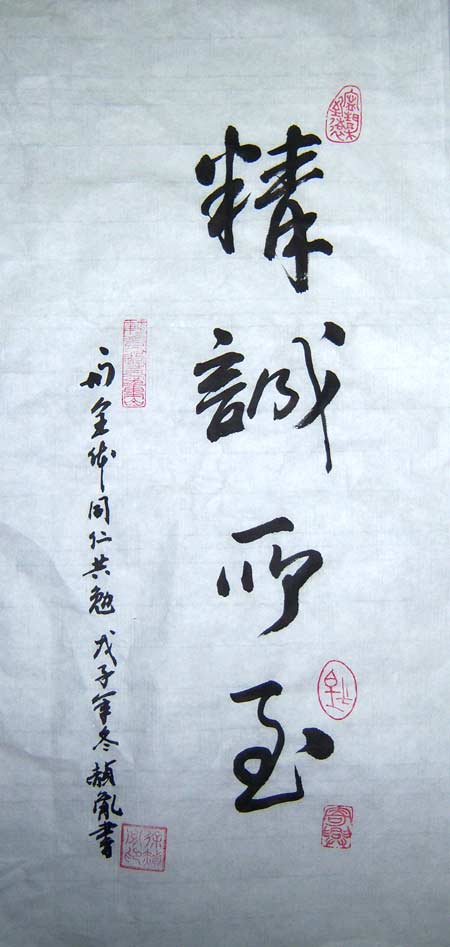 精誠所至
與全体同仁共勉 戊子年冬赫胤書